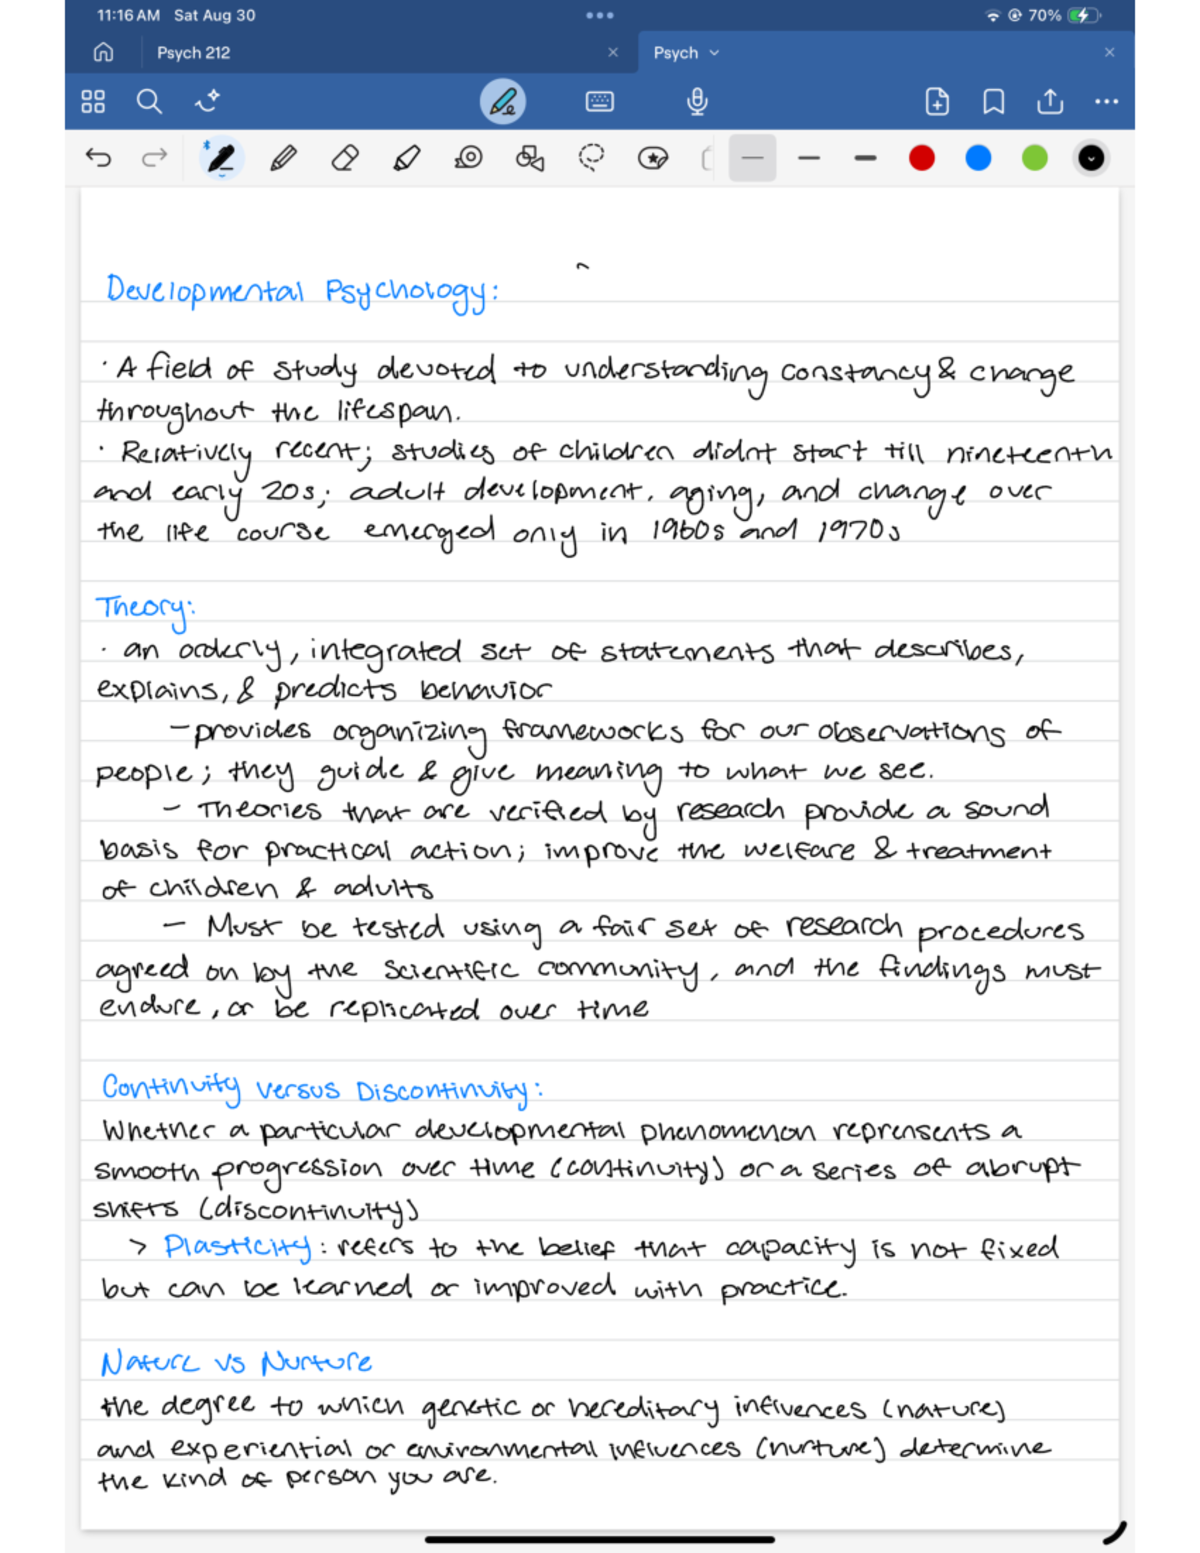 11:16 AM Sat Aug 30
70%
Psych 212
Psych
Developmental Psychology:
· A field of study devoted to understanding constancy & change
throughout the lifespan.
· Relatively recent; studies of children didnt start till nineteenth
and early 20s; adult development, aging, and change over
the life course emerged only in 1960s and 1970s
Theory:
· an orderly, integrated set of statements that describes,
explains, & predicts behavior
- provides organizing frameworks for our observations of
people; they guide & give meaning to what we see.
- Theories that are verified by research provide a sound
basis for practical action; improve the welfare & treatment
of children & adults
- Must be tested using a fair set of research procedures
agreed on by the scientific community, and the findings must
endure, or be replicated over time
Continuity versus Discontinuity:
Whether a particular developmental phenomenon reprensents a
smooth progression over time (continuity) or a series of abrupt
shifts (discontinuity)
> Plasticity: refers to the belief that capacity is not fixed
but can be learned or improved with practice.
Nature vs Nurture
the degree to which genetic or hereditary influences (nature)
and experiential or environmental influences (nurture) determine
the kind of person you are.